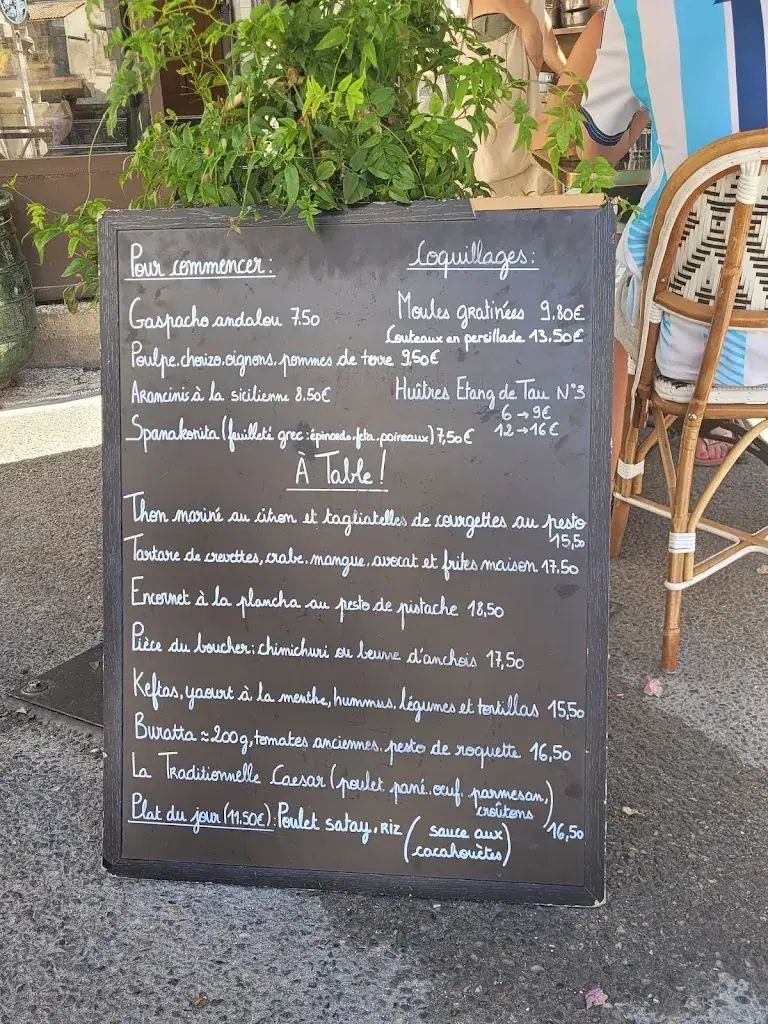 Pour commencer:
Gaspacho andalou 7.50
Poulpe, chorizo, oignons, pommes de terre 9,50€
Arancinis à la sicilienne 8.50€
Spanakopita (feuilleté grec: épinards, feta, poireaux) 7,50€
Coquillages:
Moules gratinées 9.80€
Couteaux en persillade 13.50€
Huîtres Etang de Tau N°3
6 → 9€
12 → 16€
À Table!
Thon mariné au citron et tagliatelles de courgettes au pesto
15,50
Tartare de crevettes, crabe, mangue, avocat et frites maison 17.50
Encornet à la plancha au pesto de pistache 18,50
Pièce du boucher: chimichuri ou beurre d'anchois 17,50
Keftas, yaourt à la menthe, hummus, légumes et tortillas 15,50
Buratta ≈200g, tomates anciennes, pesto de roquette 16,50
La Traditionnelle Caesar (poulet pané, œuf, parmesan,
croûtons) 16,50
Plat du jour (11.50€): Poulet satay, riz (sauce aux
cacahouètes)